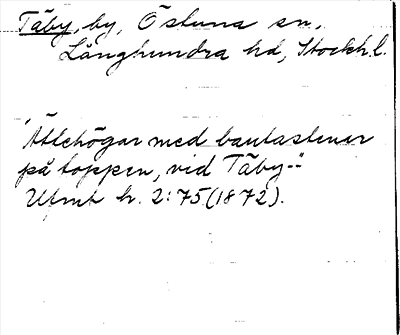 Täby, by, Östuna sn,
Långhundra hd, Stockh.l.
"Ättehögar med bautastenar
på toppen, vid Täby–"
Utmt kr. 2:75 (1872).